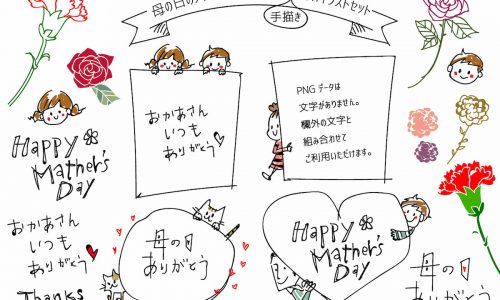 母の日の
ラストセット
手描き
おかあさん
いつも
ありがとう
PNGデータは
文字がありません。
欄外の文字と
組み合わせて
ご利用いただけます。
Happy
Mather's
Day
おかあさん
いつも
ありがとう
Thanks
母の日
ありがとう
Happy
Mather's
Day
母の日
ありがとう